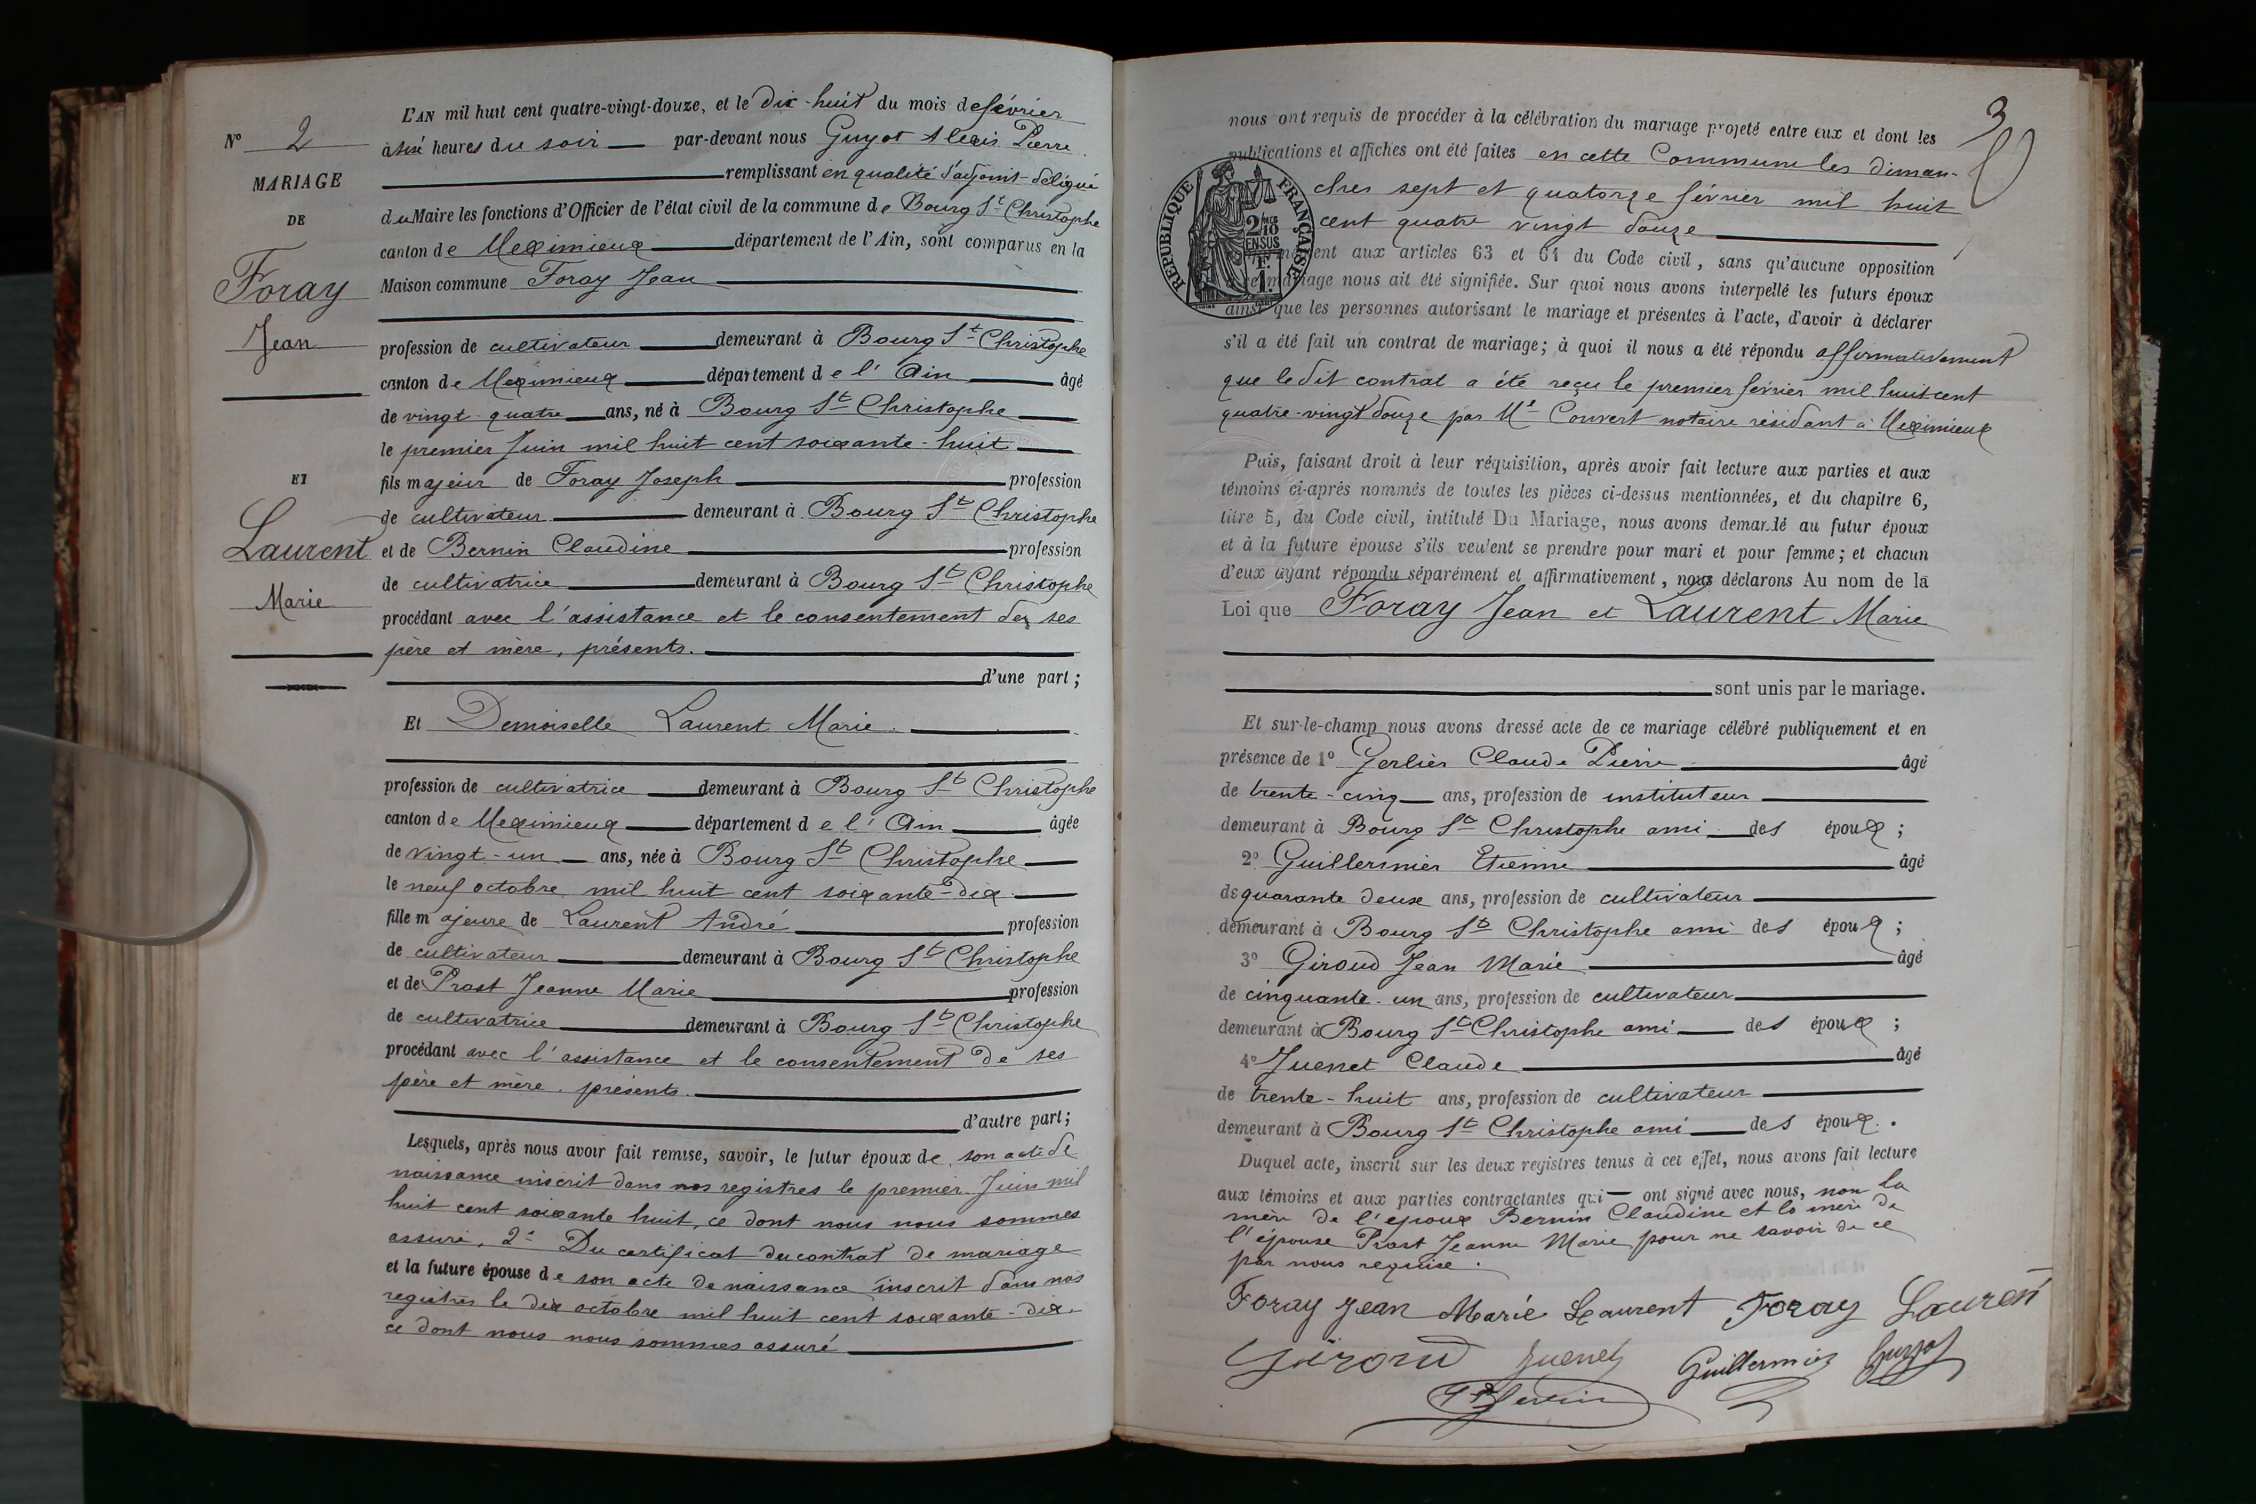 L'AN mil huit cent quatre-vingt-douze, et le dix-huit du mois de février
à six heures du soir par-devant nous Guyot Alexis Pierre
remplissant en qualité d'adjoint délégué
du Maire les fonctions d'Officier de l'état civil de la commune de Bourg St Christophe
canton de Meximieux département de l'Ain, sont comparus en la
Maison commune Foray Jean
profession de cultivateur demeurant à Bourg St Christophe
canton de Meximieux département de l'Ain âgé
de vingt-quatre ans, né à Bourg St Christophe
le premier Juin mil huit cent soixante-huit
fils majeur de Foray Joseph profession
de cultivateur demeurant à Bourg St Christophe
et de Bernin Claudine profession
de cultivatrice demeurant à Bourg St Christophe
procédant avec l'assistance et le consentement de ses
père et mère, présents.
d'une part;
Et Demoiselle Laurent Marie.
profession de cultivatrice demeurant à Bourg St Christophe
canton de Meximieux département de l'Ain âgée
de vingt-un ans, née à Bourg St Christophe
le neuf octobre mil huit cent soixante-dix
fille majeure de Laurent André profession
de cultivateur demeurant à Bourg St Christophe
et de Prost Jeanne Marie profession
de cultivatrice demeurant à Bourg St Christophe
procédant avec l'assistance et le consentement de ses
père et mère. présents.
d'autre part;
Lesquels, après nous avoir fait remise, savoir, le futur époux de son acte de
naissance inscrit dans nos registres le premier Juin mil
huit cent soixante huit, ce dont nous nous sommes
assuré, 2° Du certificat du contrat de mariage
et la future épouse de son acte de naissance inscrit dans nos
registres le dix octobre mil huit cent soixante-dix.
ce dont nous nous sommes assuré
N° 2
MARIAGE
DE
Foray
Jean
ET
Laurent
Marie
3
nous ont requis de procéder à la célébration du mariage projeté entre eux et dont les
publications et affiches ont été faites en cette Commune les diman-
ches sept et quatorze février mil huit
cent quatre vingt douze
RÉPUBLIQUE FRANÇAISE
2/10
EN SUS
1 F.
aux articles 63 et 64 du Code civil, sans qu'aucune opposition
mariage nous ait été signifiée. Sur quoi nous avons interpellé les futurs époux
ainsi que les personnes autorisant le mariage et présentes à l'acte, d'avoir à déclarer
s'il a été fait un contrat de mariage; à quoi il nous a été répondu affirmativement
que le dit contrat a été reçu le premier février mil huit cent
quatre-vingt douze par Me Convert notaire résidant à Meximieux
Puis, faisant droit à leur réquisition, après avoir fait lecture aux parties et aux
témoins ci-après nommés de toutes les pièces ci-dessus mentionnées, et du chapitre 6,
titre 5, du Code civil, intitulé Du Mariage, nous avons demandé au futur époux
et à la future épouse s'ils veulent se prendre pour mari et pour femme; et chacun
d'eux ayant répondu séparément et affirmativement, nous déclarons Au nom de la
Loi que Foray Jean et Laurent Marie
sont unis par le mariage.
Et sur-le-champ nous avons dressé acte de ce mariage célébré publiquement et en
présence de 1° Gerlier Claude Pierre âgé
de trente-cinq ans, profession de instituteur
demeurant à Bourg St Christophe ami des époux;
2° Guillermier Etienne âgé
de quarante deux ans, profession de cultivateur
demeurant à Bourg St Christophe ami des époux;
3° Giroud Jean Marie âgé
de cinquante-un ans, profession de cultivateur
demeurant à Bourg St Christophe ami des époux;
4° Juenet Claude âgé
de trente-huit ans, profession de cultivateur
demeurant à Bourg St Christophe ami des époux.
Duquel acte, inscrit sur les deux registres tenus à cet effet, nous avons fait lecture
aux témoins et aux parties contractantes qui ont signé avec nous, non la
mère de l'époux Bernin Claudine et la mère de
l'épouse Prost Jeanne Marie pour ne savoir de ce
par nous requise.
Foray Jean Marie Laurent Foray Laurent
Giroud Juenet Guillermier Guyot